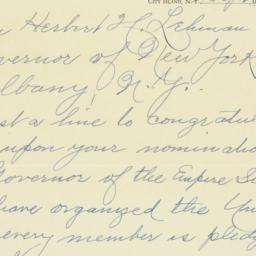 CITY ISLAND, N.Y.
Herbert H. Lehman
vernor of New York
lbany, N.Y.
st a line to congratul
upon your nominatio
Governor of the Empire S
have organized the Un
every member is pledg